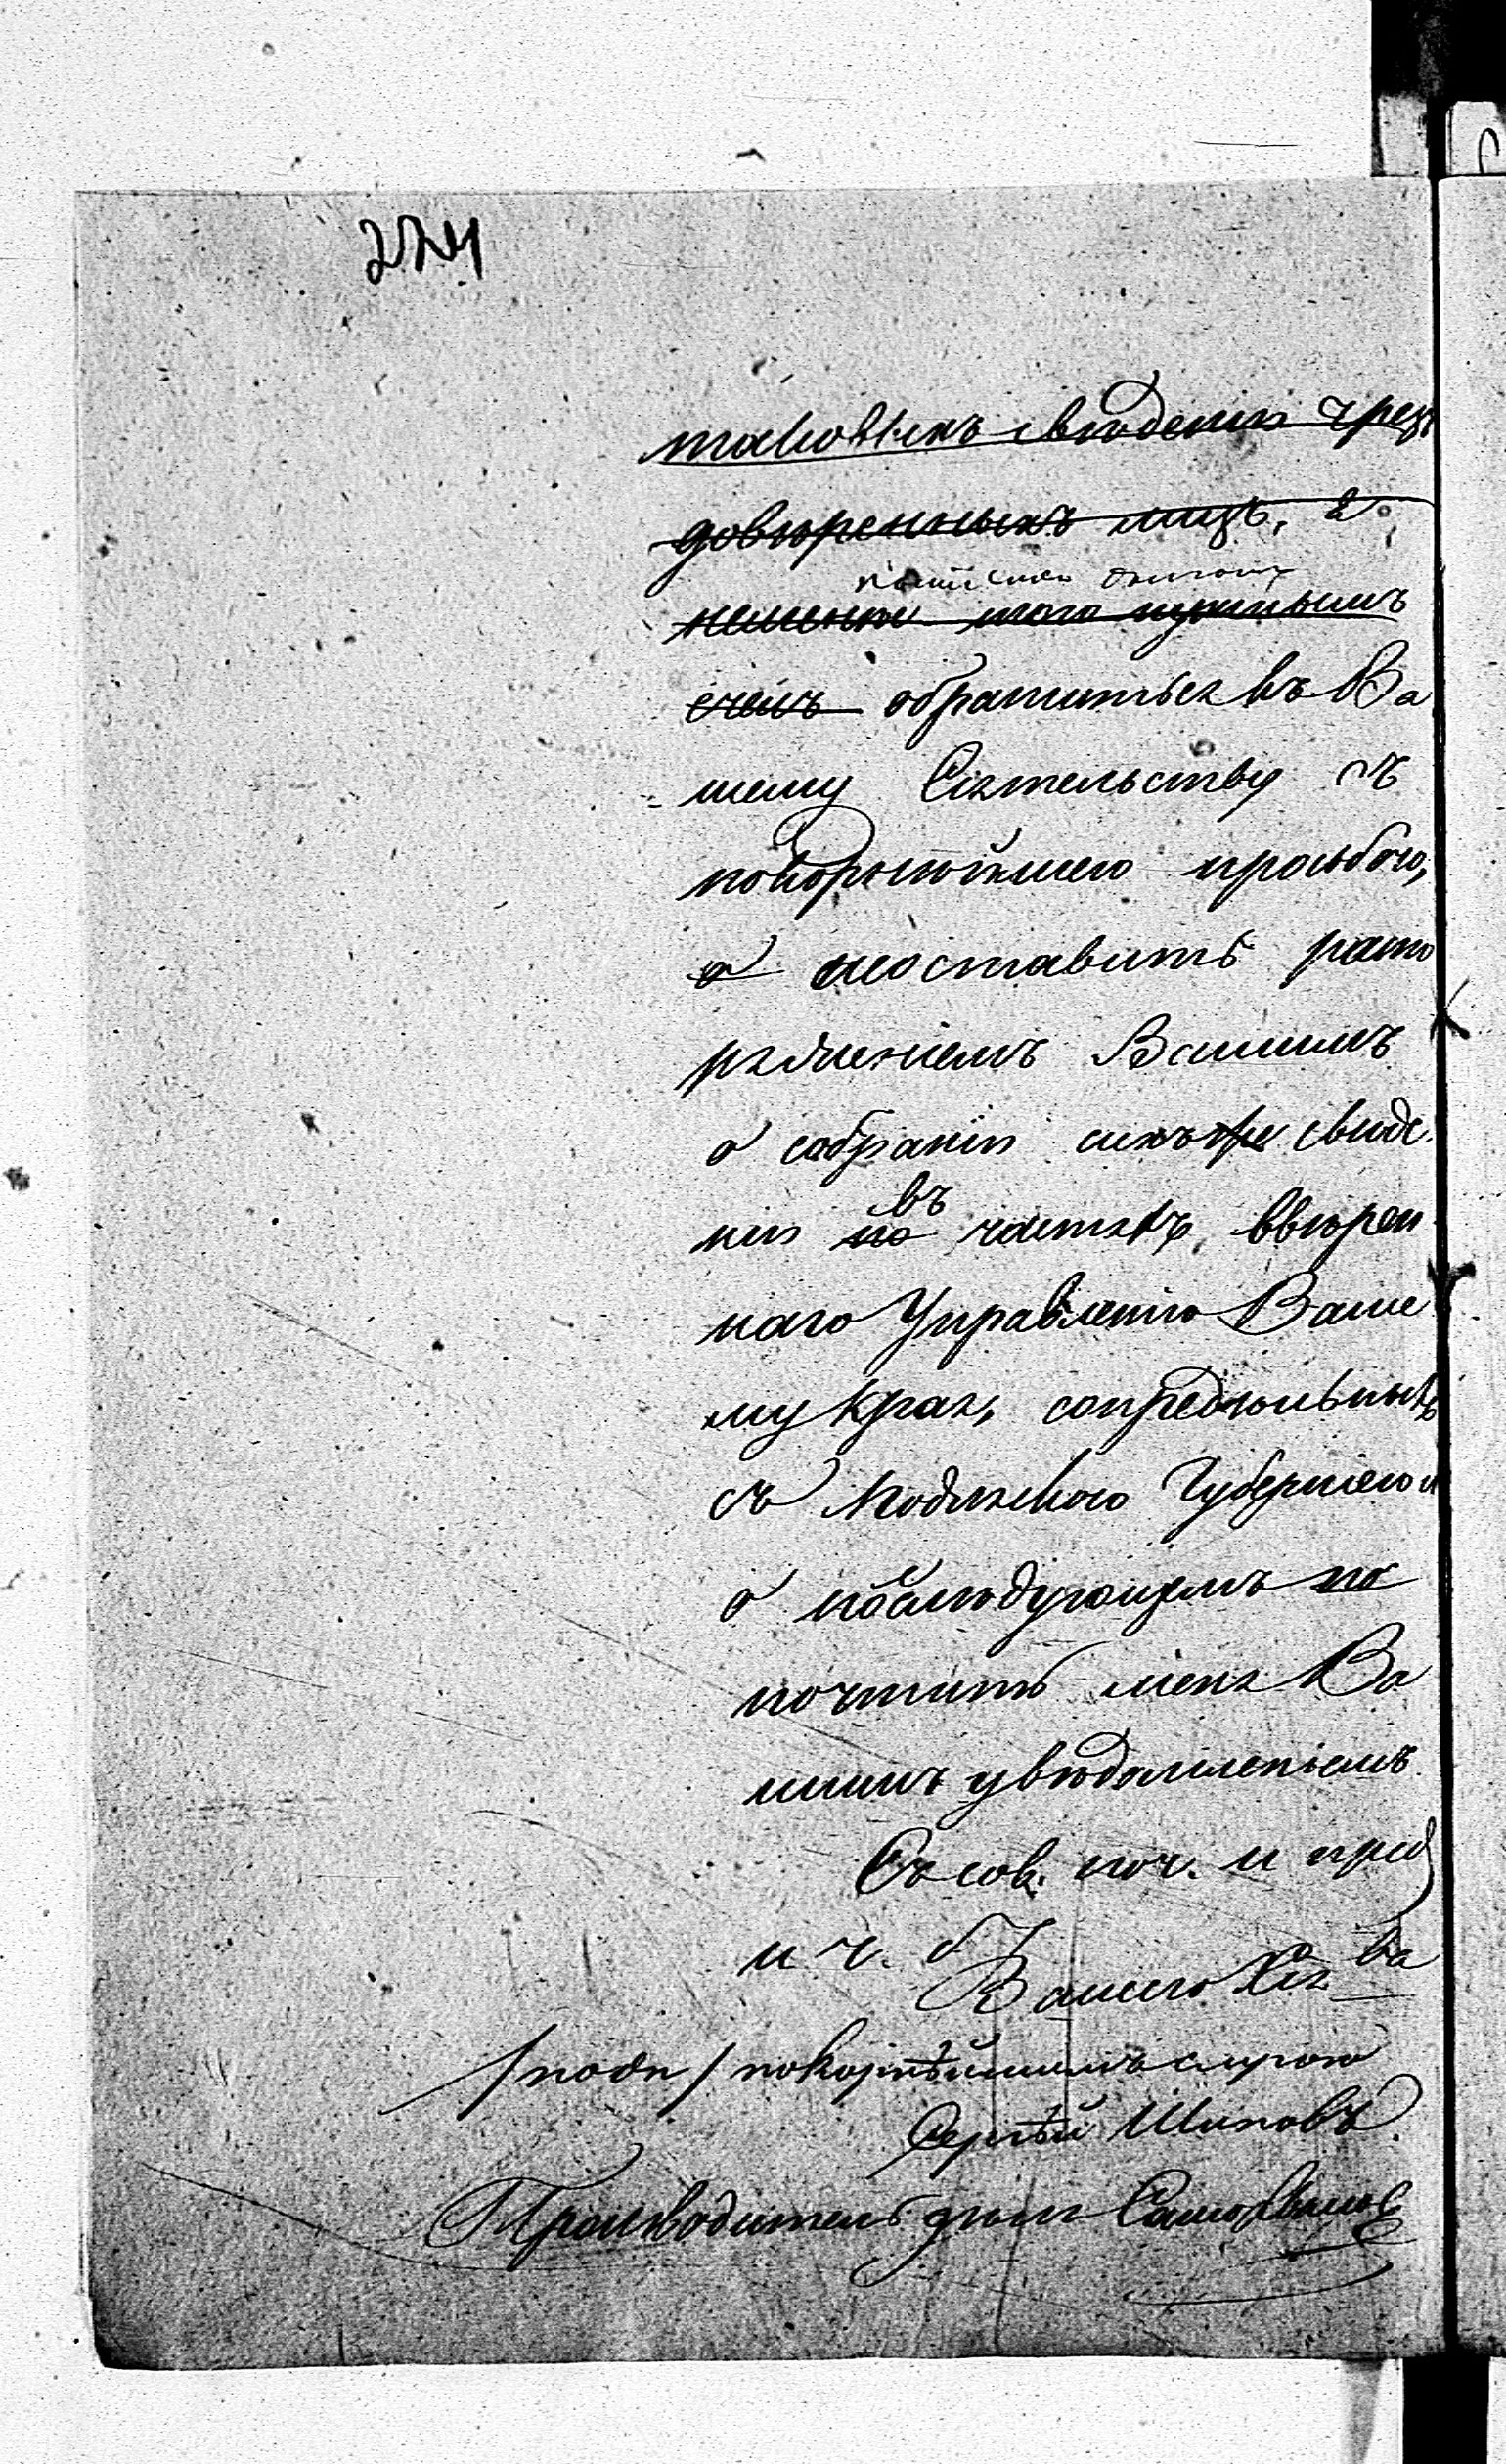 274
таковыхъ свѣденія чрезъ
довѣренныхъ лицъ,
обратиться къ Ва
шему Сіятельству съ
покорнѣйшею просьбою,
о неоставить распо
ряженіемъ Вашимъ
о собраніи сихъ же свѣде
нія по въ частяхъ, ввѣрен
наго Управленію Ваше
му края, сопредѣльныхъ
съ Подольскою Губерніею и
о послѣдующемъ не
почтить меня Ва
шимъ увѣдомленіемъ.
Съ сов. поч. и пред
и ч. б.
Вашего Сія ва
/подп/ покорнѣйшимъ слугою
Сергѣй Шиповъ.
Производитель дѣлъ